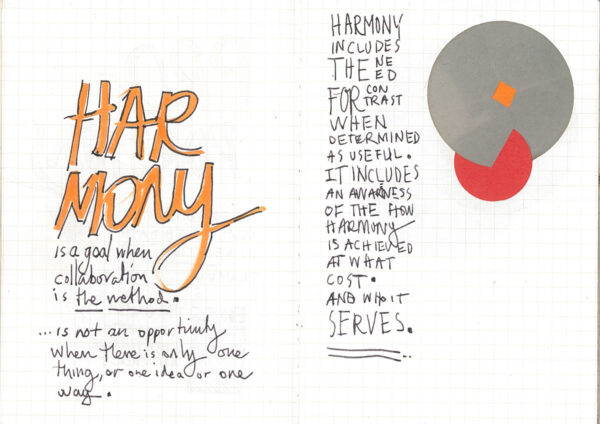 HAR
MONY
is a goal when
collaboration
is the method.
...is not an opportunity
when there is only one
thing, or one idea or one
way.
HARMONY
INCLUDES
THE NE
ED
FOR CON
TRAST
WHEN
DETERMINED
AS USEFUL.
IT INCLUDES
AN AWARENESS
OF THE HOW
HARMONY
IS ACHIEVED
AT WHAT
COST.
AND WHO IT
SERVES.